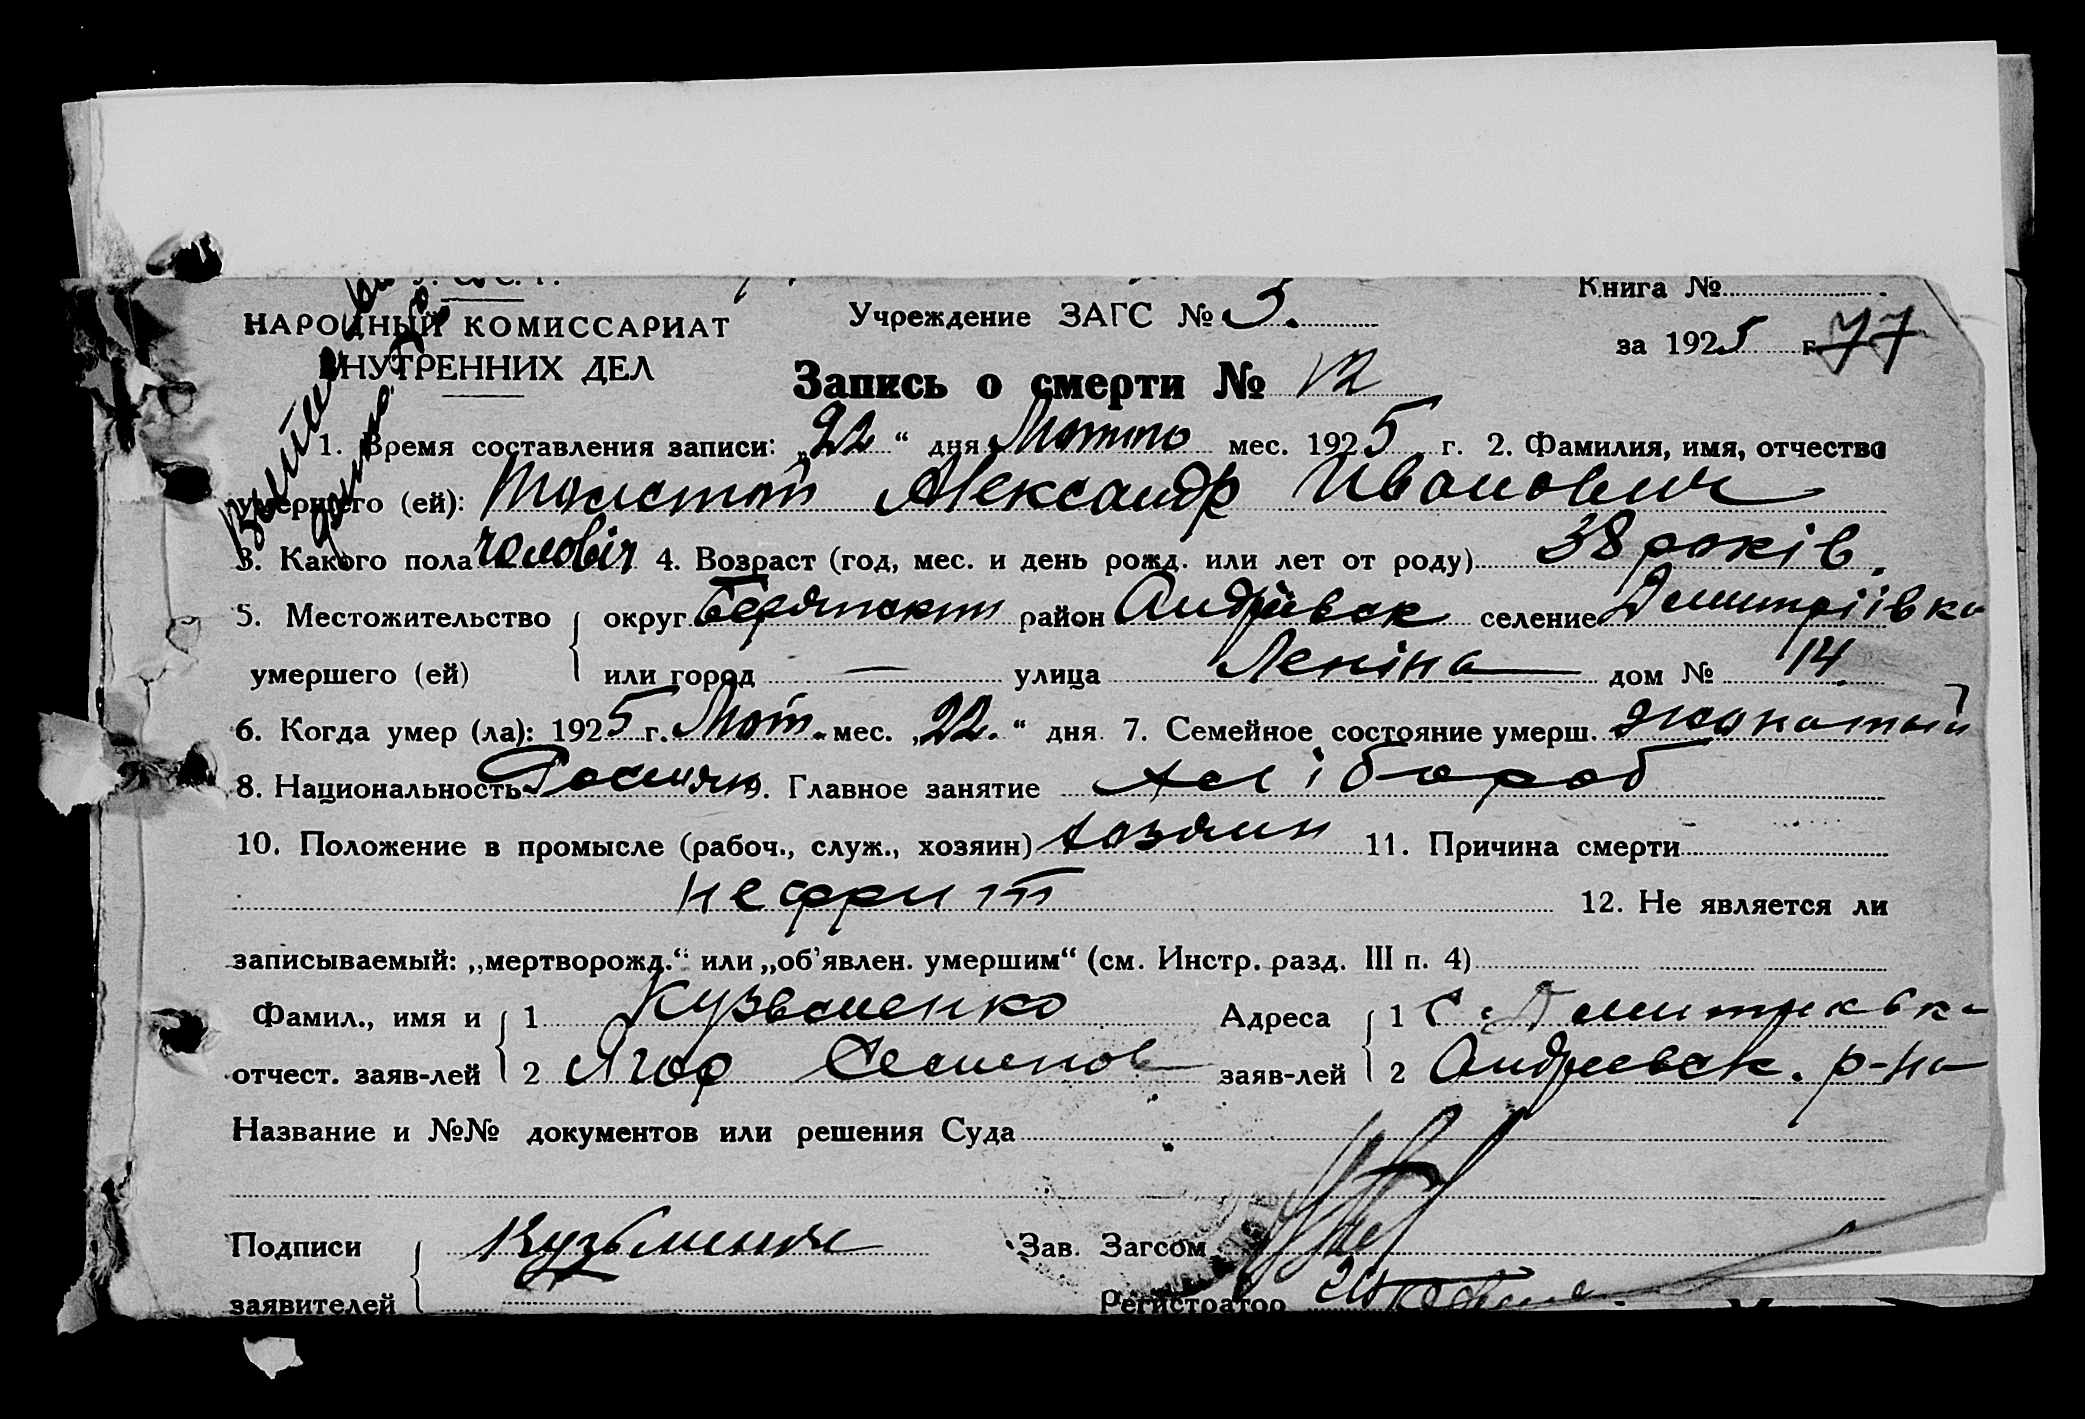 НАРОДНЫЙ КОМИССАРИАТ
ВНУТРЕННИХ ДЕЛ
Учреждение ЗАГС № 3.
Книга №
за 1925 г. 77
Запись о смерти № 12
1. Время составления записи: „22“ дня мес. 1925 г. 2. Фамилия, имя, отчество
умершего (ей): Толстой Александр Иванович
3. Какого пола чоловiч 4. Возраст (год, мес. и день рожд. или лет от роду) 38 рокiв.
5. Местожительство округ район Андрiивск селение Дмитрiiвка
умершего (ей) или город — улица Ленiна дом № 14
6. Когда умер (ла): 1925 г. мес. „22.“ дня. 7. Семейное состояние умерш. жонатый
8. Национальность Росиян 9. Главное занятие хлiбороб
10. Положение в промысле (рабоч., служ., хозяин) хозяин 11. Причина смерти
нефрит 12. Не является ли
записываемый: „мертворожд.“ или „об'явлен. умершим“ (см. Инстр. разд. III п. 4)
Фамил., имя и 1 Кузьменко Адреса 1 С.
отчест. заяв-лей 2 Семенов заяв-лей 2 Андреевск. р-на
Название и №№ документов или решения Суда
Подписи Кузьменко Зав. Загсом
заявителей Регистратор